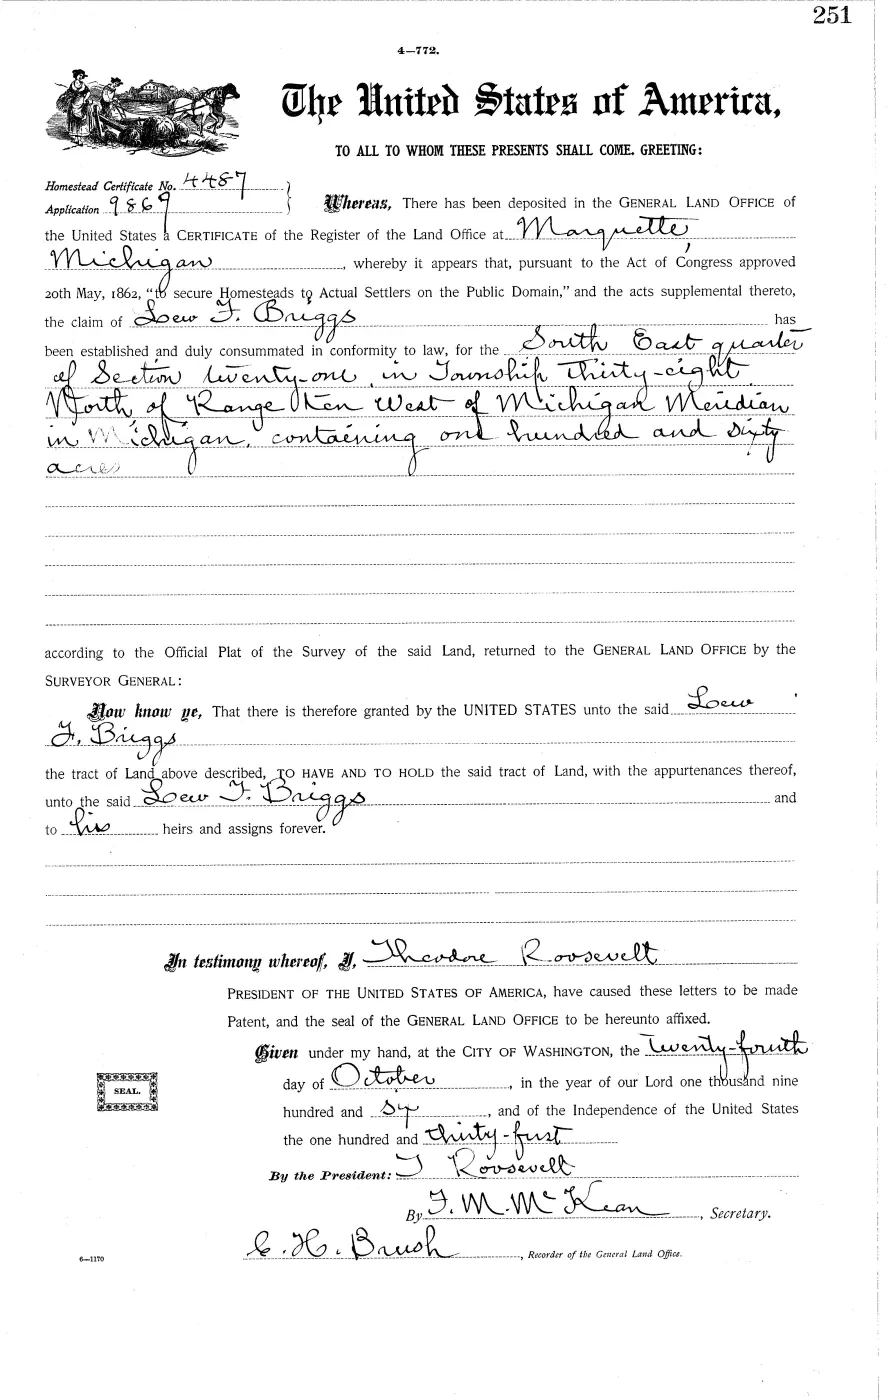 251
4—772.
The United States of America,
TO ALL TO WHOM THESE PRESENTS SHALL COME, GREETING:
Homestead Certificate No. 4487
Application 9869
Whereas, There has been deposited in the GENERAL LAND OFFICE of
the United States a CERTIFICATE of the Register of the Land Office at Marquette,
Michigan, whereby it appears that, pursuant to the Act of Congress approved
20th May, 1862, "to secure Homesteads to Actual Settlers on the Public Domain," and the acts supplemental thereto,
the claim of Lew F. Briggs has
been established and duly consummated in conformity to law, for the South East quarter
of Section twenty-one in Township thirty-eight
North of Range ten West of Michigan Meridian
in Michigan, containing one hundred and sixty
acres
according to the Official Plat of the Survey of the said Land, returned to the GENERAL LAND OFFICE by the
SURVEYOR GENERAL:
Now know ye, That there is therefore granted by the UNITED STATES unto the said Lew
F. Briggs
the tract of Land above described, TO HAVE AND TO HOLD the said tract of Land, with the appurtenances thereof,
unto the said Lew F. Briggs and
to his heirs and assigns forever.
In testimony whereof, I, Theodore Roosevelt
PRESIDENT OF THE UNITED STATES OF AMERICA, have caused these letters to be made
Patent, and the seal of the GENERAL LAND OFFICE to be hereunto affixed.
Given under my hand, at the CITY OF WASHINGTON, the twenty-fourth
day of October, in the year of our Lord one thousand nine
hundred and six, and of the Independence of the United States
the one hundred and thirty-first
SEAL.
By the President: T Roosevelt
By F. M. McKean, Secretary.
C. H. Brush, Recorder of the General Land Office.
6—1170